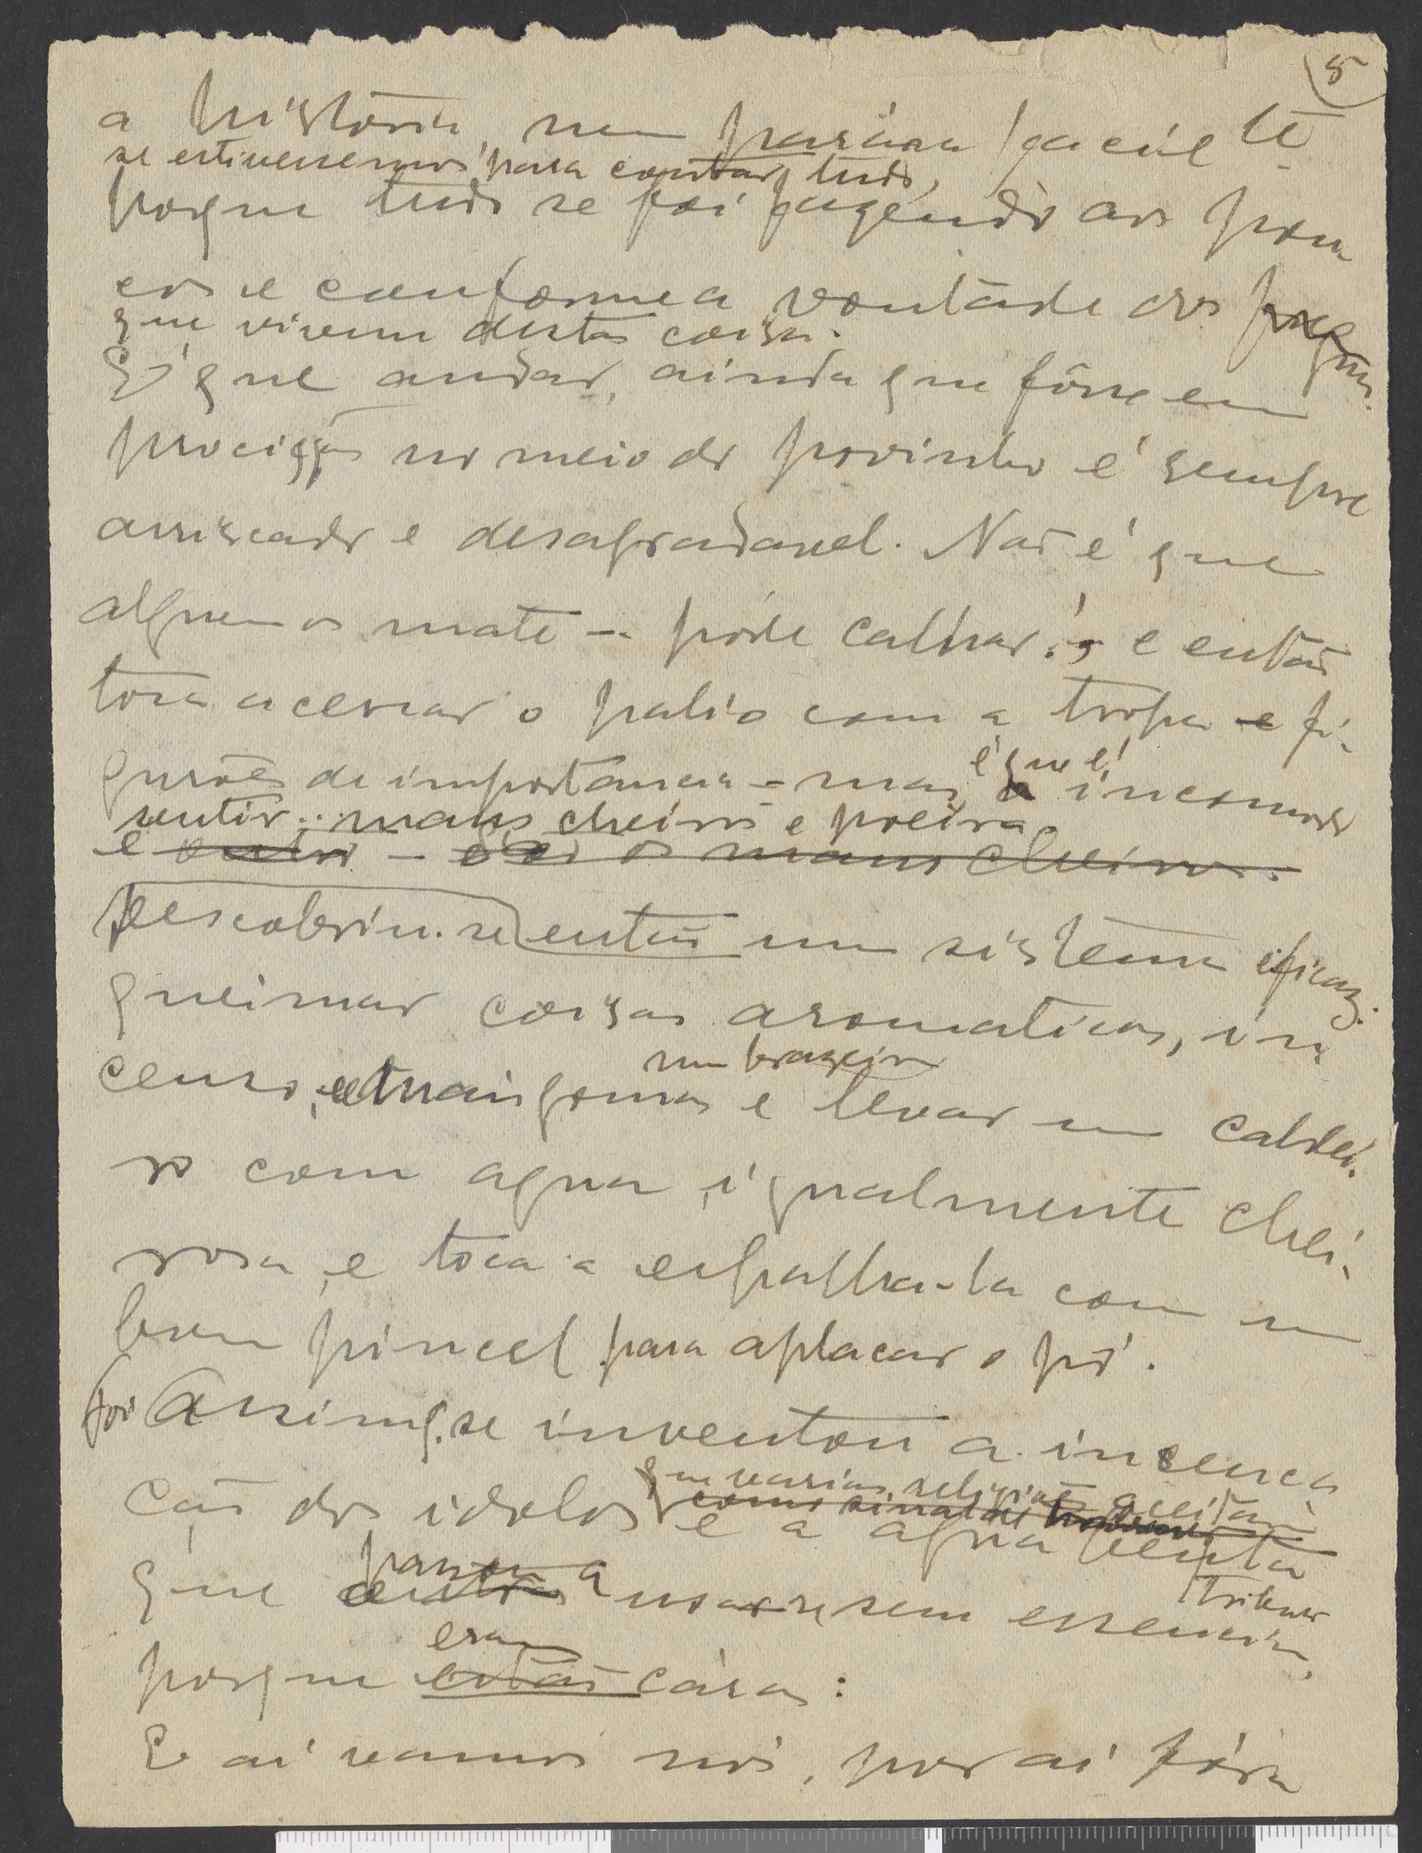 5
a história, nem parava facilte
se estivessemos para contar tudo,
porque tudo se foi fazendo aos pou
cos e conforme a vontade dos
que vivem destas coisas.
E' que andar, ainda que fôsse em
procissão no meio do povinho é sempre
arriscado e desagradavel. Não é que
alguem os mate — póde calhar! e então
toca a cercar o palio com a tropa e fi-
gurões de importancia — mas é que é incomodo
sentir maus cheiros e poeira.
e outro — os maus cheiros.
Descobriu-se então um sistema eficaz:
queimar coisas aromaticas, in
num brazeiro
censo, e mais gomas e levar um caldei-
ro com agua, igualmente chei-
rosa, e toca a espalha-la com um
bom pincel para aplacar o pó.
Foi assim q. se inventou a incensa
que varias religiões aceitam
como sinal de
ção dos idolos e a agua benta
passou a
que usar-se sem essencia,
eram
porque estão cáras:
E aí vamos nós, por aí fóra